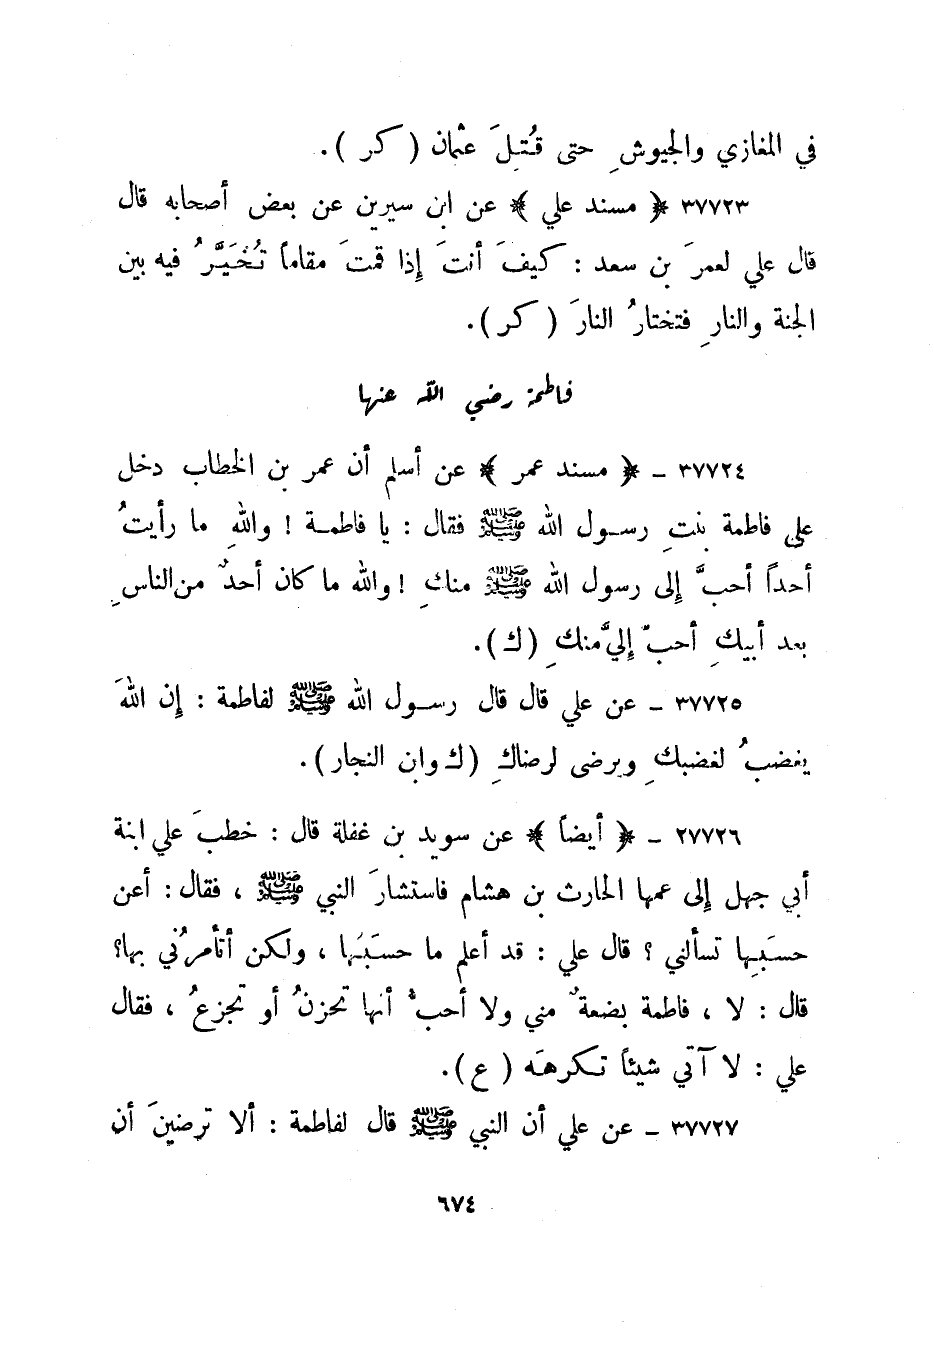 في المغازي والجيوشِ حتى قُتِلَ عثمان ( كر ) .
٣٧٧٢٣ ﴿ مسند علي ﴾ عن ابن سيرين عن بعض أصحابه قال
قال علي لعمرَ بن سعد : كيفَ أنتَ إِذا قمتَ مقاماً تُخَيَّرُ فيه بين
الجنة والنارِ فتختارُ النارَ ( كر ) .
فاطمة رضي الله عنها
٣٧٧٢٤ ـ ﴿ مسند عمر ﴾ عن أسلم أن عمر بن الخطاب دخل
على فاطمة بنتِ رسول الله ﷺ فقال : يا فاطمة ! واللهِ ما رأيتُ
أحداً أحبَّ إِلى رسول الله ﷺ منكِ ! والله ما كان أحدٌ من الناسِ
بعد أبيكِ أحبّ إِليَّ منكِ ( ك ) .
٣٧٧٢٥ ـ عن علي قال قال رسول الله ﷺ لفاطمة : إِن اللهَ
يغضبُ لغضبكِ ويرضى لرضاكِ ( ك وابن النجار ) .
٢٧٧٢٦ ـ ﴿ أيضاً ﴾ عن سويد بن غفلة قال : خطبَ علي ابنة
أبي جهل إِلى عمها الحارث بن هشام فاستشارَ النبي ﷺ ، فقال : أعن
حسَبِها تسألني ؟ قال علي : قد أعلم ما حسَبُها ، ولكن أتأمرُني بها؟
قال : لا ، فاطمة بضعةٌ مني ولا أحبُّ أنها تحزنُ أو تجزعُ ، فقال
علي : لا آتي شيئاً تكرهَه ( ع ) .
٣٧٧٢٧ ـ عن علي أن النبي ﷺ قال لفاطمة : ألا ترضينَ أن
٦٧٤